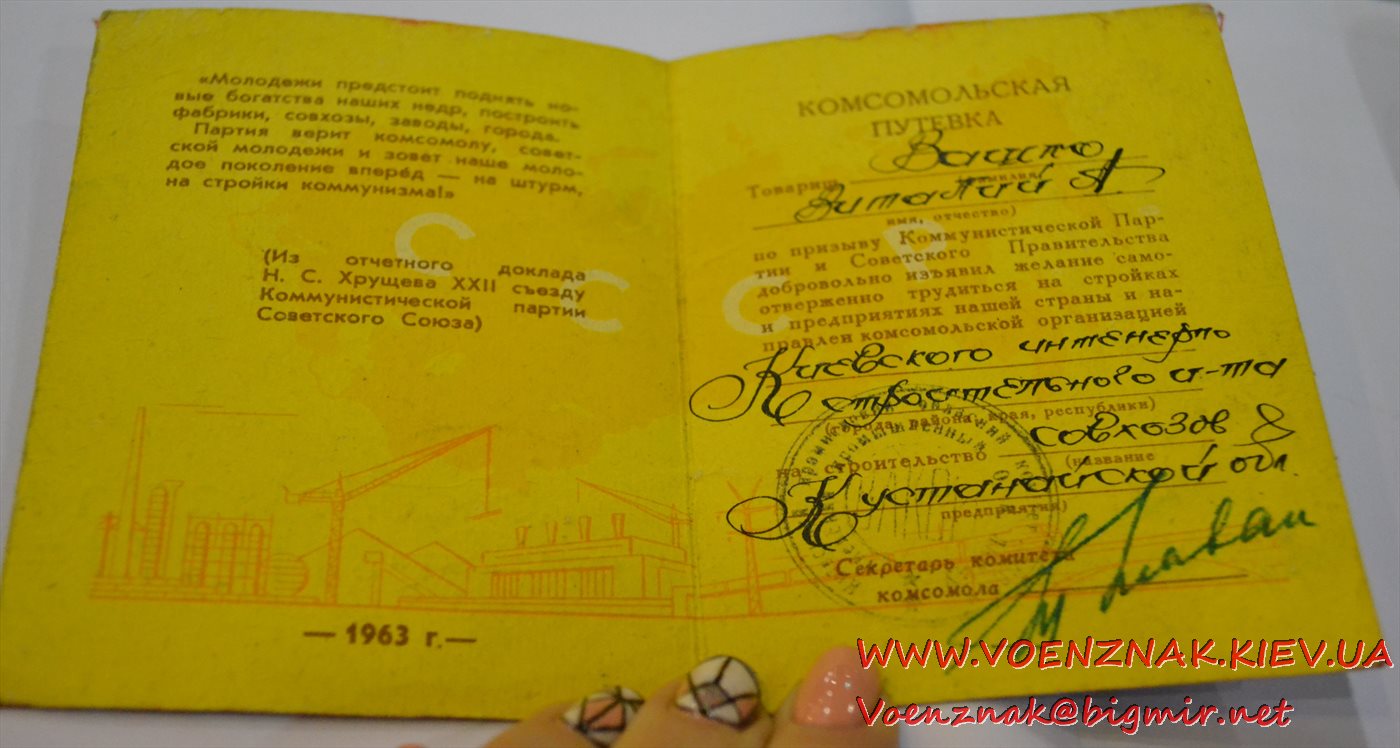 «Молодежи предстоит поднять но-
вые богатства наших недр, построить
фабрики, совхозы, заводы, города.
Партия верит комсомолу, совет-
ской молодежи и зовет наше моло-
дое поколение вперёд — на штурм,
на стройки коммунизма!»
(Из отчетного доклада
Н. С. Хрущева XXII съезду
Коммунистической партии
Советского Союза)
С С С Р
— 1963 г.—
КОМСОМОЛЬСКАЯ
ПУТЕВКА
Товарищ
Виталий А.
имя, отчество)
по призыву Коммунистической Пар-
тии и Советского Правительства
добровольно изъявил желание само-
отверженно трудиться на стройках
и предприятиях нашей страны и на-
правлен комсомольской организацией
Киевского инженерно
строительного и-та
(города, района, края, республики)
на строительство совхозов в
(название
Кустанайской обл.
предприятия)
Секретарь комитета
комсомола
WWW.VOENZNAK.KIEV.UA
Voenznak@bigmir.net